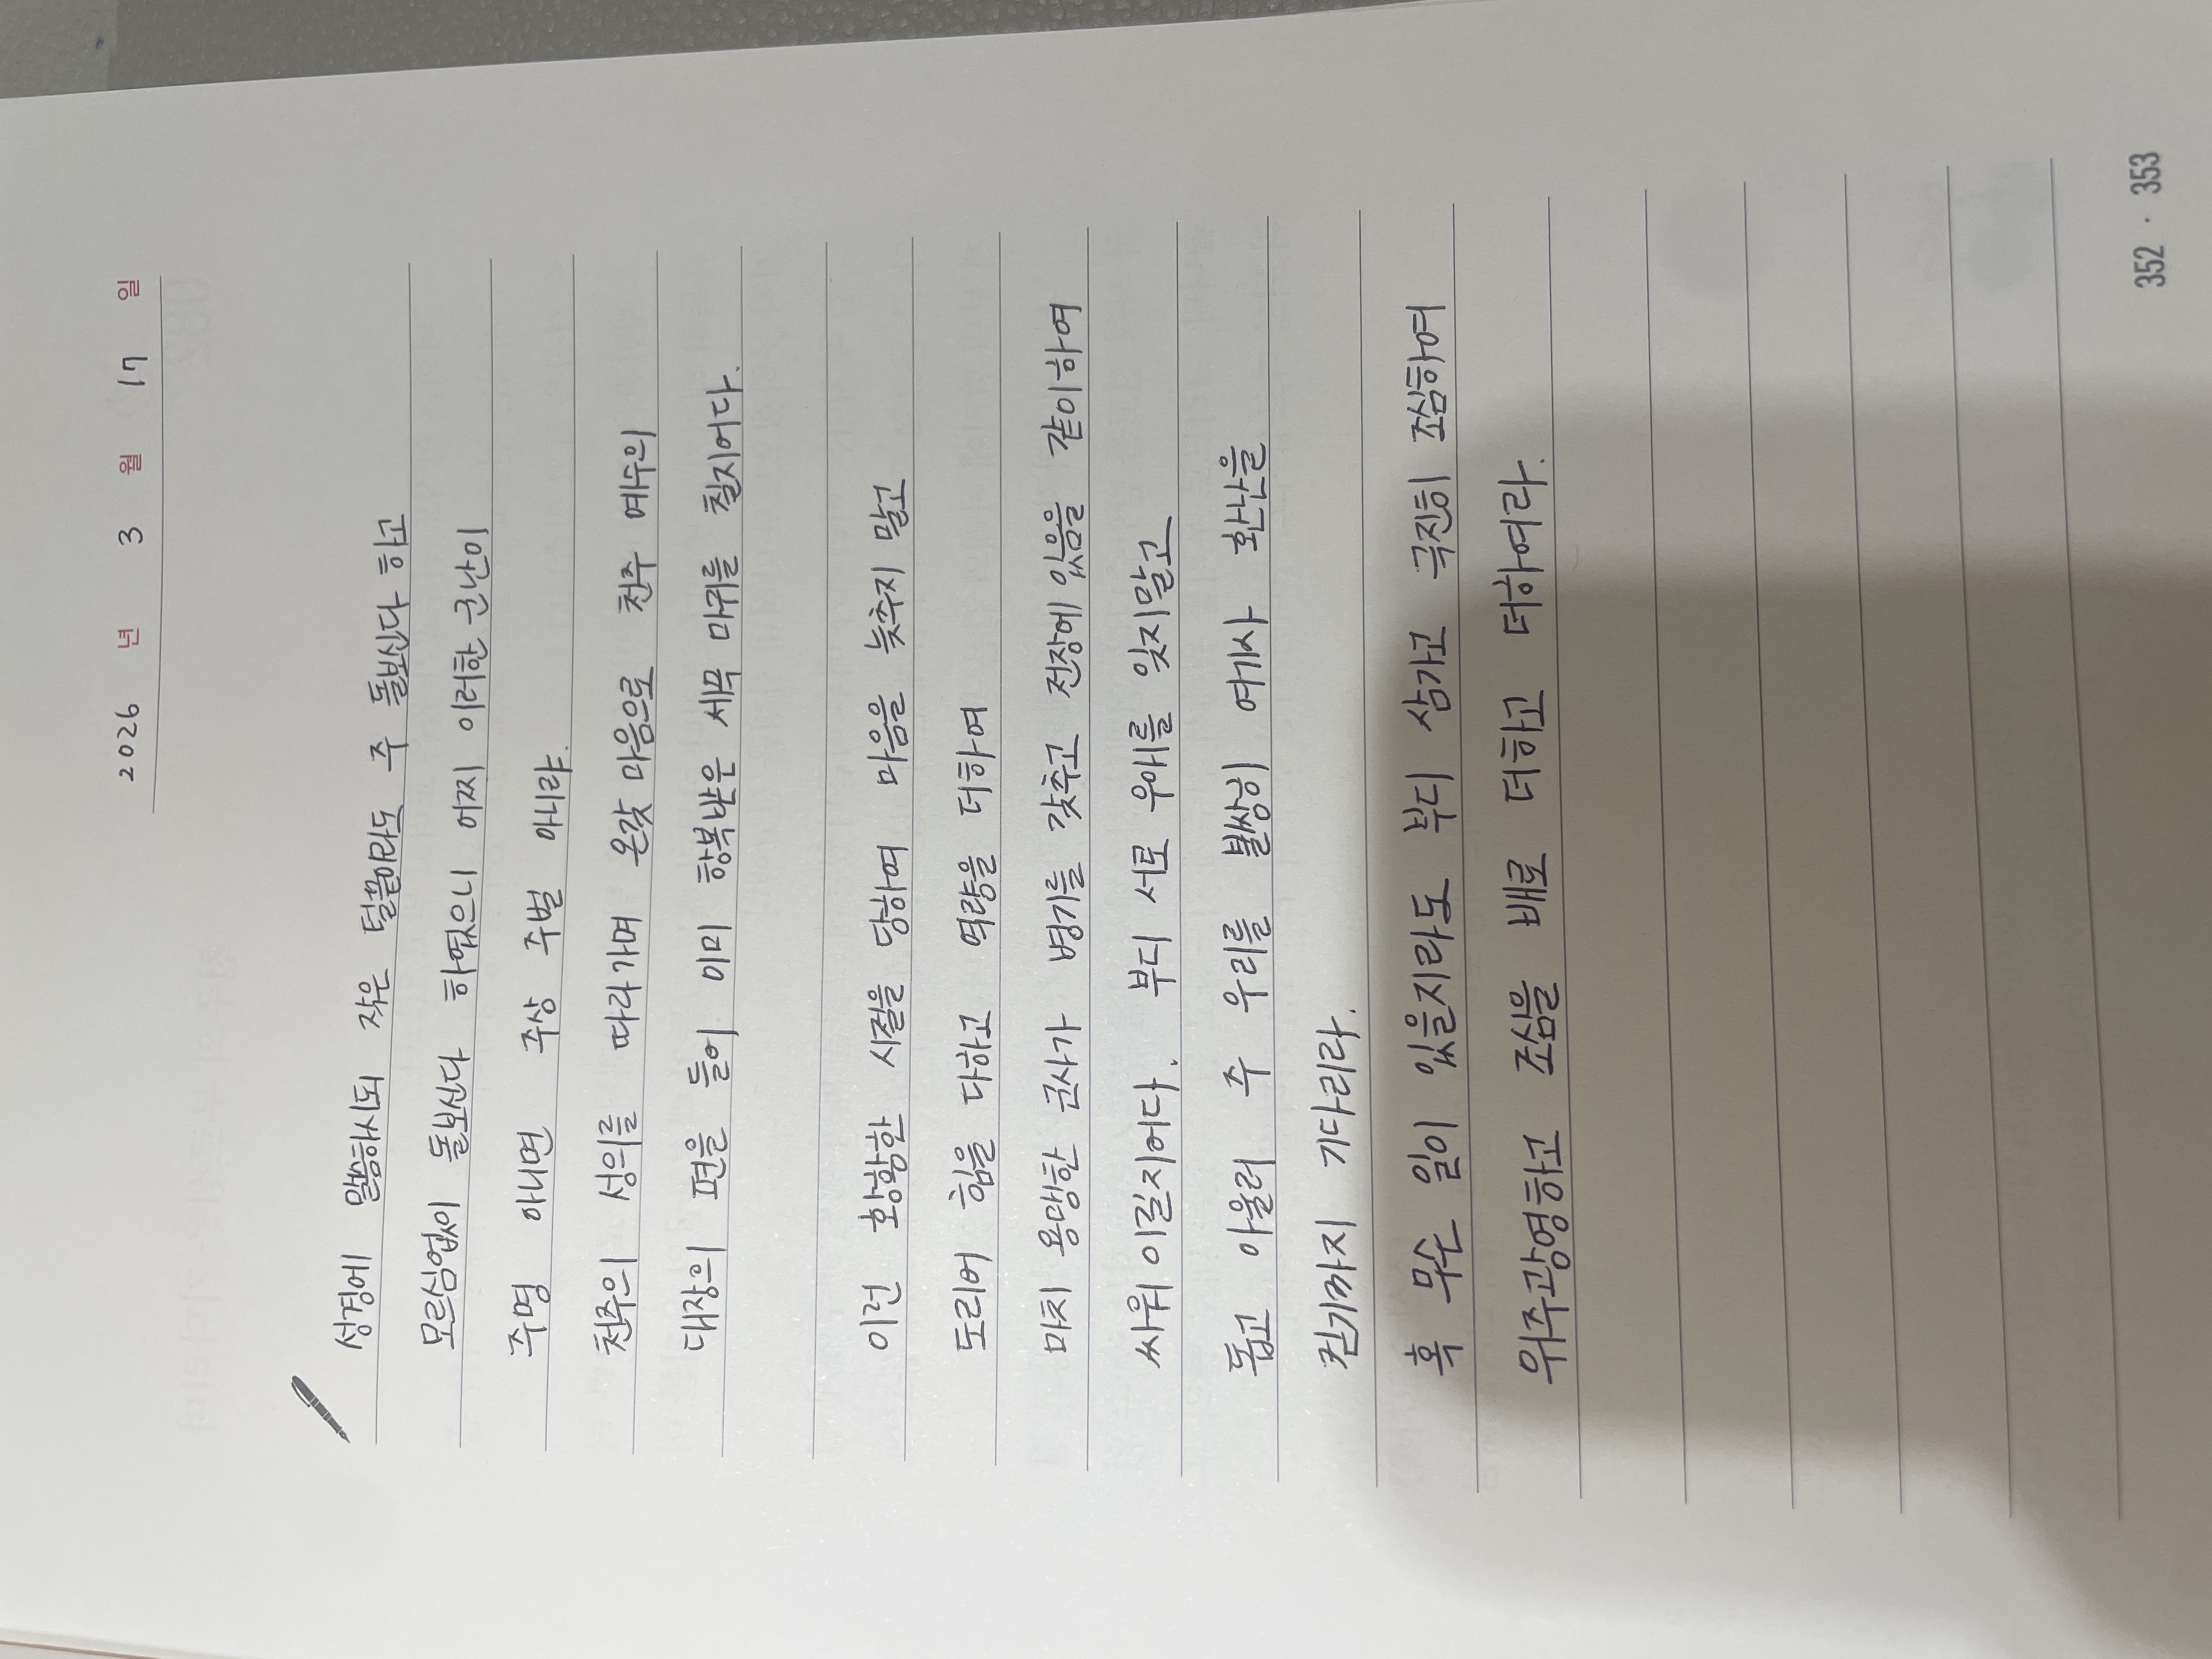 2026 년 3 월 17 일
성경에 말씀하시되 작은 털끝이라도 주 돌보신다 하고
모르심없이 돌보신다 하였으니 어찌 이러한 군난이
주명 아니면 주상 주벌 아니랴.
천주의 성의를 따라가며 온갖 마음으로 천주 예수의
대장의 편을 들어 이미 항복받은 세속 마귀를 칠지어다.
이런 황황한 시절을 당하여 마음을 늦추지 말고
도리어 힘을 다하고 역량을 더하여
마치 용맹한 군사가 병기를 갖추고 전장에 있음을 같이하여
싸워 이길지어다. 부디 서로 우애를 잊지말고
돕고 아울러 주 우리를 불쌍히 여기사 환난을
걷기까지 기다리라.
혹 무슨 일이 있을지라도 부디 삼가고 극진히 조심하여
위주광영하고 조심을 배로 더하고 더하여라.
352 · 353